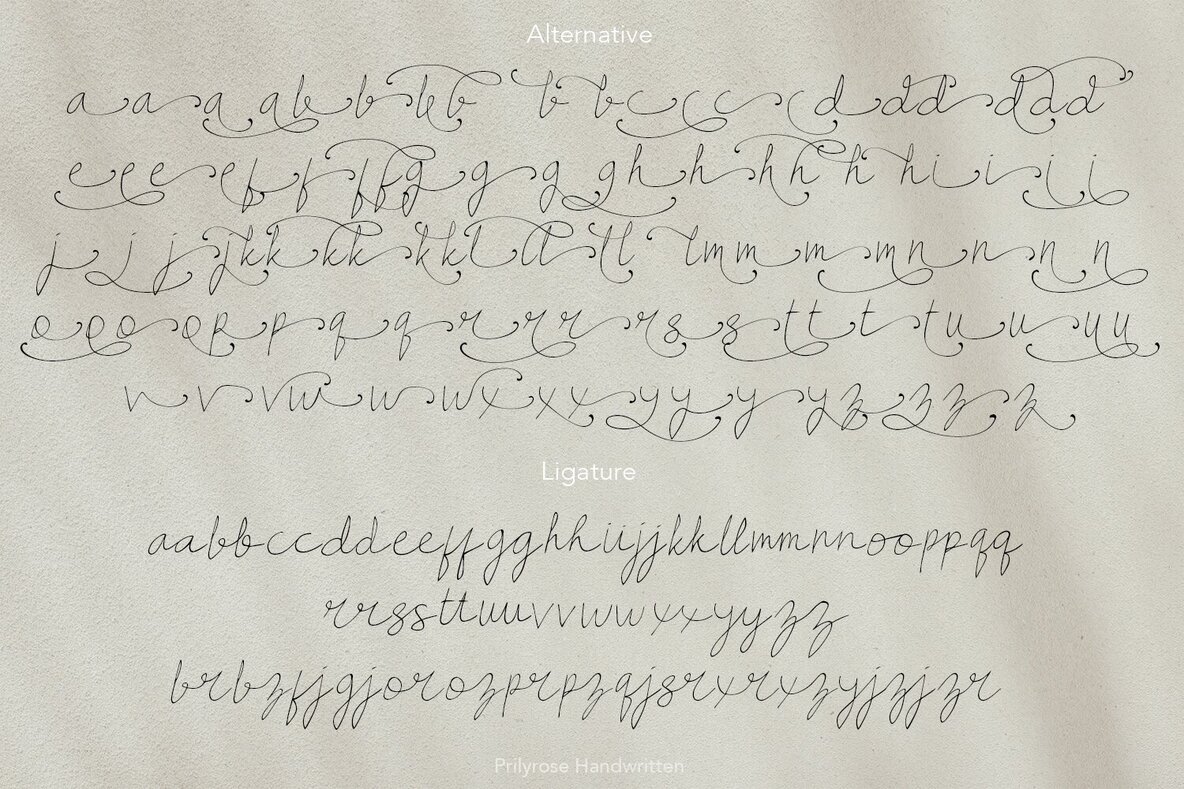 Alternative
a a a a b b b b b b c c c c d d d d d d
e e e e f f f f g g g g h h h h h h i i i i
j j j j k k k k k k l l l l l m m m m n n n n
o o o o p p q q r r r r s s t t t t u u u u
v v v w w w x x x y y y y z z z z
Ligature
aabbccddeeffgghhiijjkkllmmnnooppqq
rrssttuuvvwwxxyyzz
brbzfjgjorozprpzqjsrxrxzyjzjzr
Prilyrose Handwritten